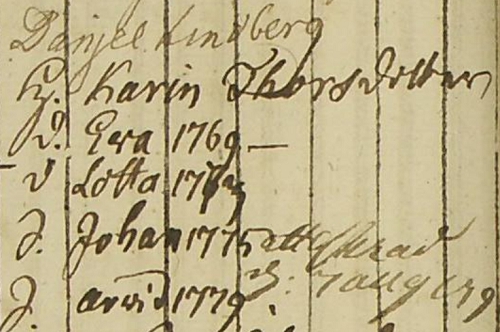 Danjel Lindberg
H. Karin Thorsdotter
d. Eva 1769 —
d Lotta
S. Johan 1775
S. arvid 1779.